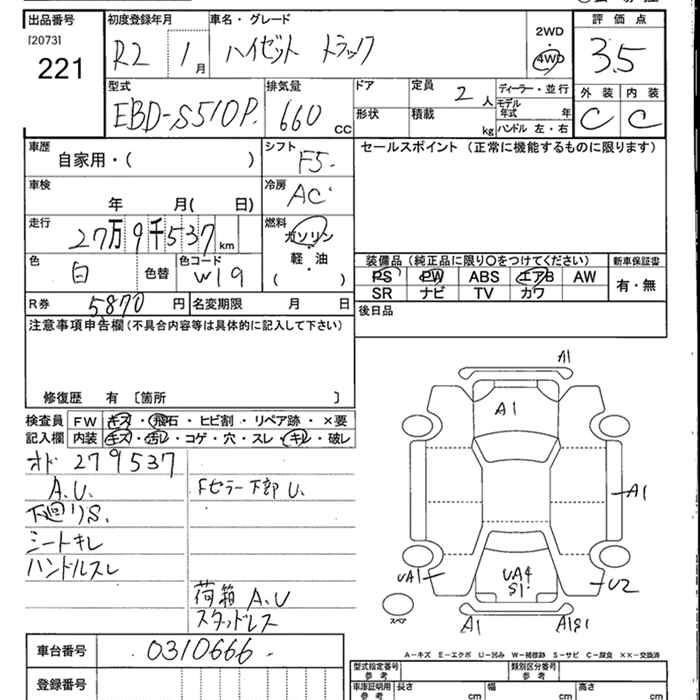 出品番号
[2073]
221
初度登録年月
R2 1月
車名・グレード
ハイゼット トラック
2WD
4WD
評価点
3.5
型式
EBD-S510P.
排気量
660 CC
ドア
形状
定員
2人
積載
kg
ディーラー・並行
モデル年式 年
ハンドル 左・右
外装 内装
C C
車歴
自家用・( )
シフト
F5
セールスポイント (正常に機能するものに限ります)
車検
年 月( 日)
冷房
AC
走行
27万9千537km
燃料
ガソリン
・
軽・油
( )
色
白
色替
色コード
W19
装備品(純正品に限り○をつけてください)
新車保証書
PS PW ABS エアB AW
SR ナビ TV カワ
有・無
R券 5870円
名変期限 月 日
後日品
注意事項申告欄(不具合内容等は具体的に記入して下さい)
修復歴 有 [箇所 ]
検査員記入欄
FW キズ・飛石・ヒビ割・リペア跡・×要
内装 キズ・汚レ・コゲ・穴・スレ・キレ・破レ
オド 279537
A.U.
下廻りS.
シートキレ
ハンドルスレ
Fセラー下部U.
荷箱 A.U
スタッドレス
A1
A1
A1
UA1
UA4
S1
U2
スペア
A1
A1S1
A-キズ E-エクボ U-凹み W-補修跡 S-サビ C-腐食 XX-交換済
車台番号
0310666
登録番号
型式指定番号 参考
類別区分番号 参考
車庫証明用 参考
長さ cm
幅 cm
高さ cm